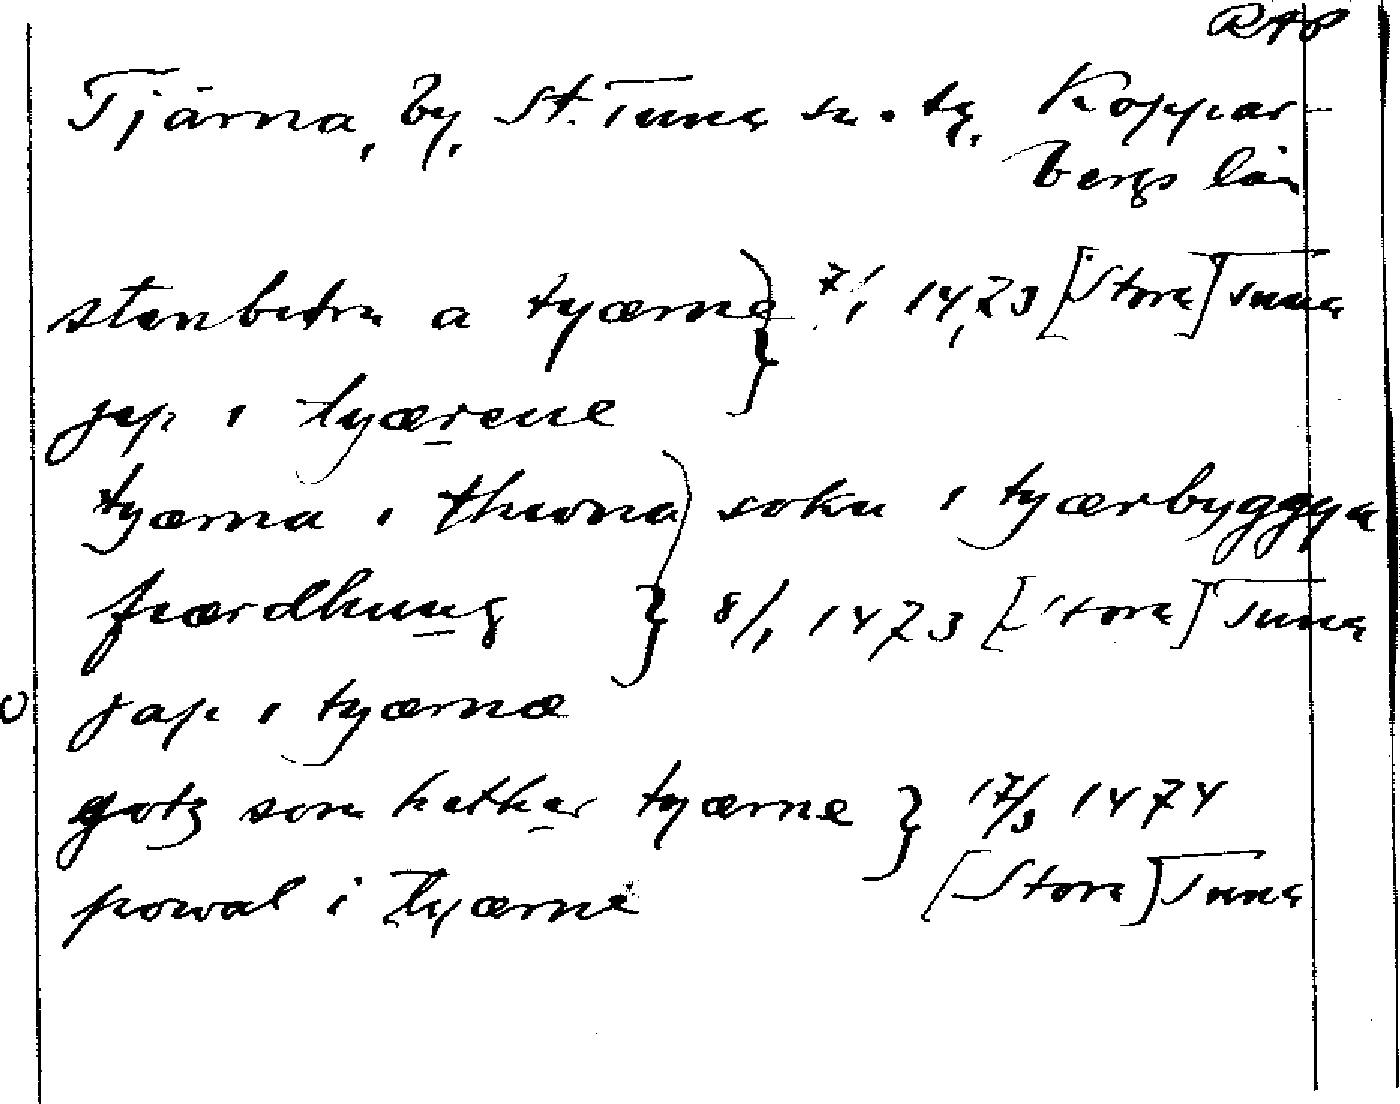 RAP
Tjärna, by, St. Tuna sn. tg. Koppar-
bergs län
stenbitra a tyærne } 7/1 1473 [Stora] Tuna
jap i tyærene
tyærna i thwna sokn i tyærbyggya
fiærdhung } 8/1 1473 [Stora] Tuna
jap i tyærnæ
gotz som hethær tyærne } 17/3 1474
powal i tyærne [Stora] Tuna